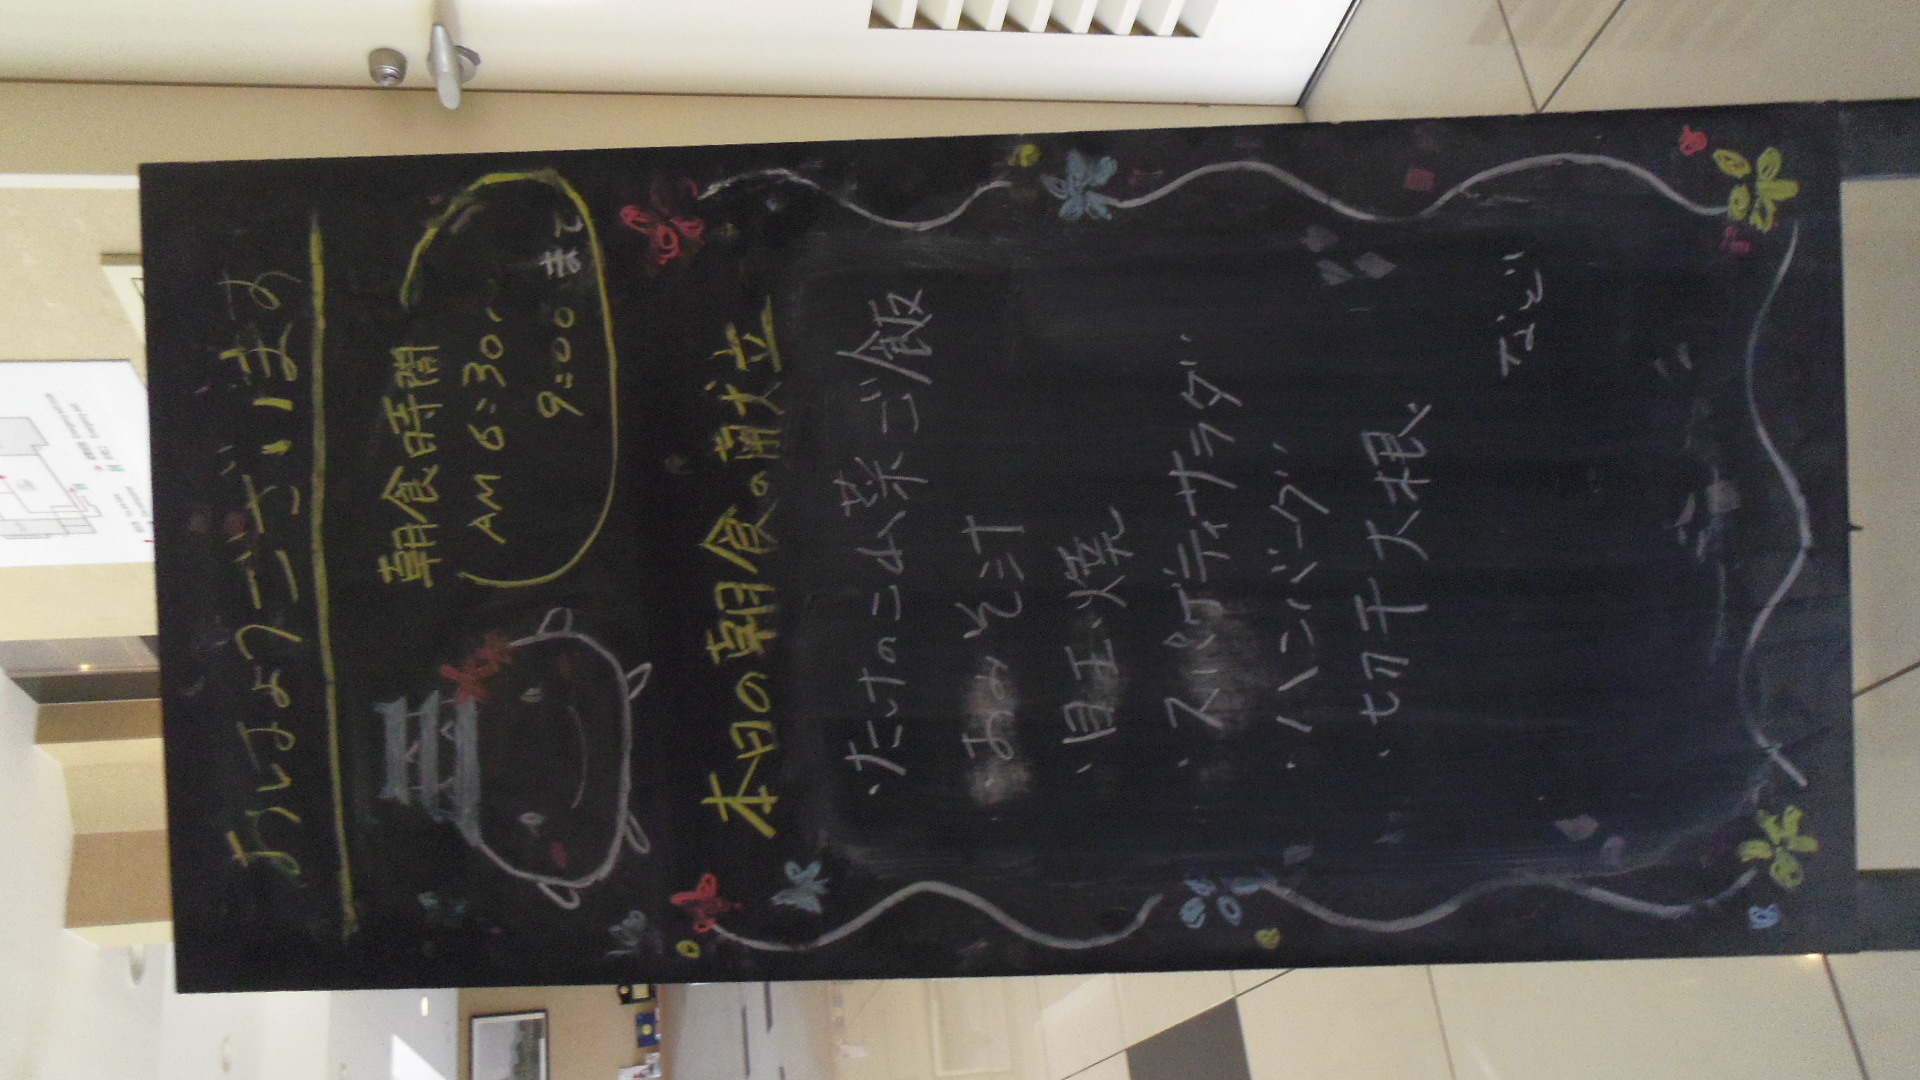 おはようございます
朝食時間
AM 6:30〜
9:00 まで
本日の朝食の献立
・たけのこ山菜ご飯
・おみそ汁
・目玉焼
・スパゲティサラダ
・ハンバーグ
・切干大根
など